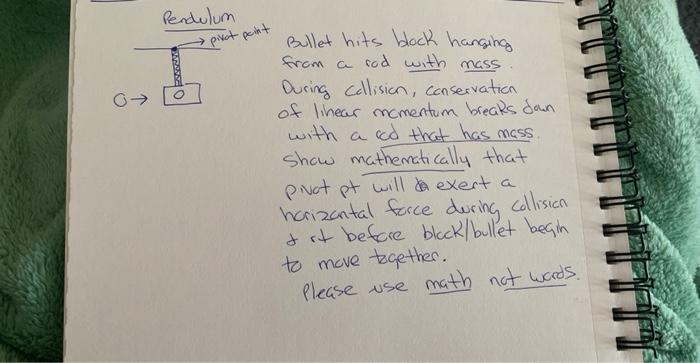 Pendulum
pivot point
Bullet hits block hanging
from a rod with mass.
During collision, conservation
of linear momentum breaks down
with a rod that has mass.
Show mathematically that
pivot pt will exert a
horizontal force during collision
before block/bullet begin
to move together.
Please use math not words.